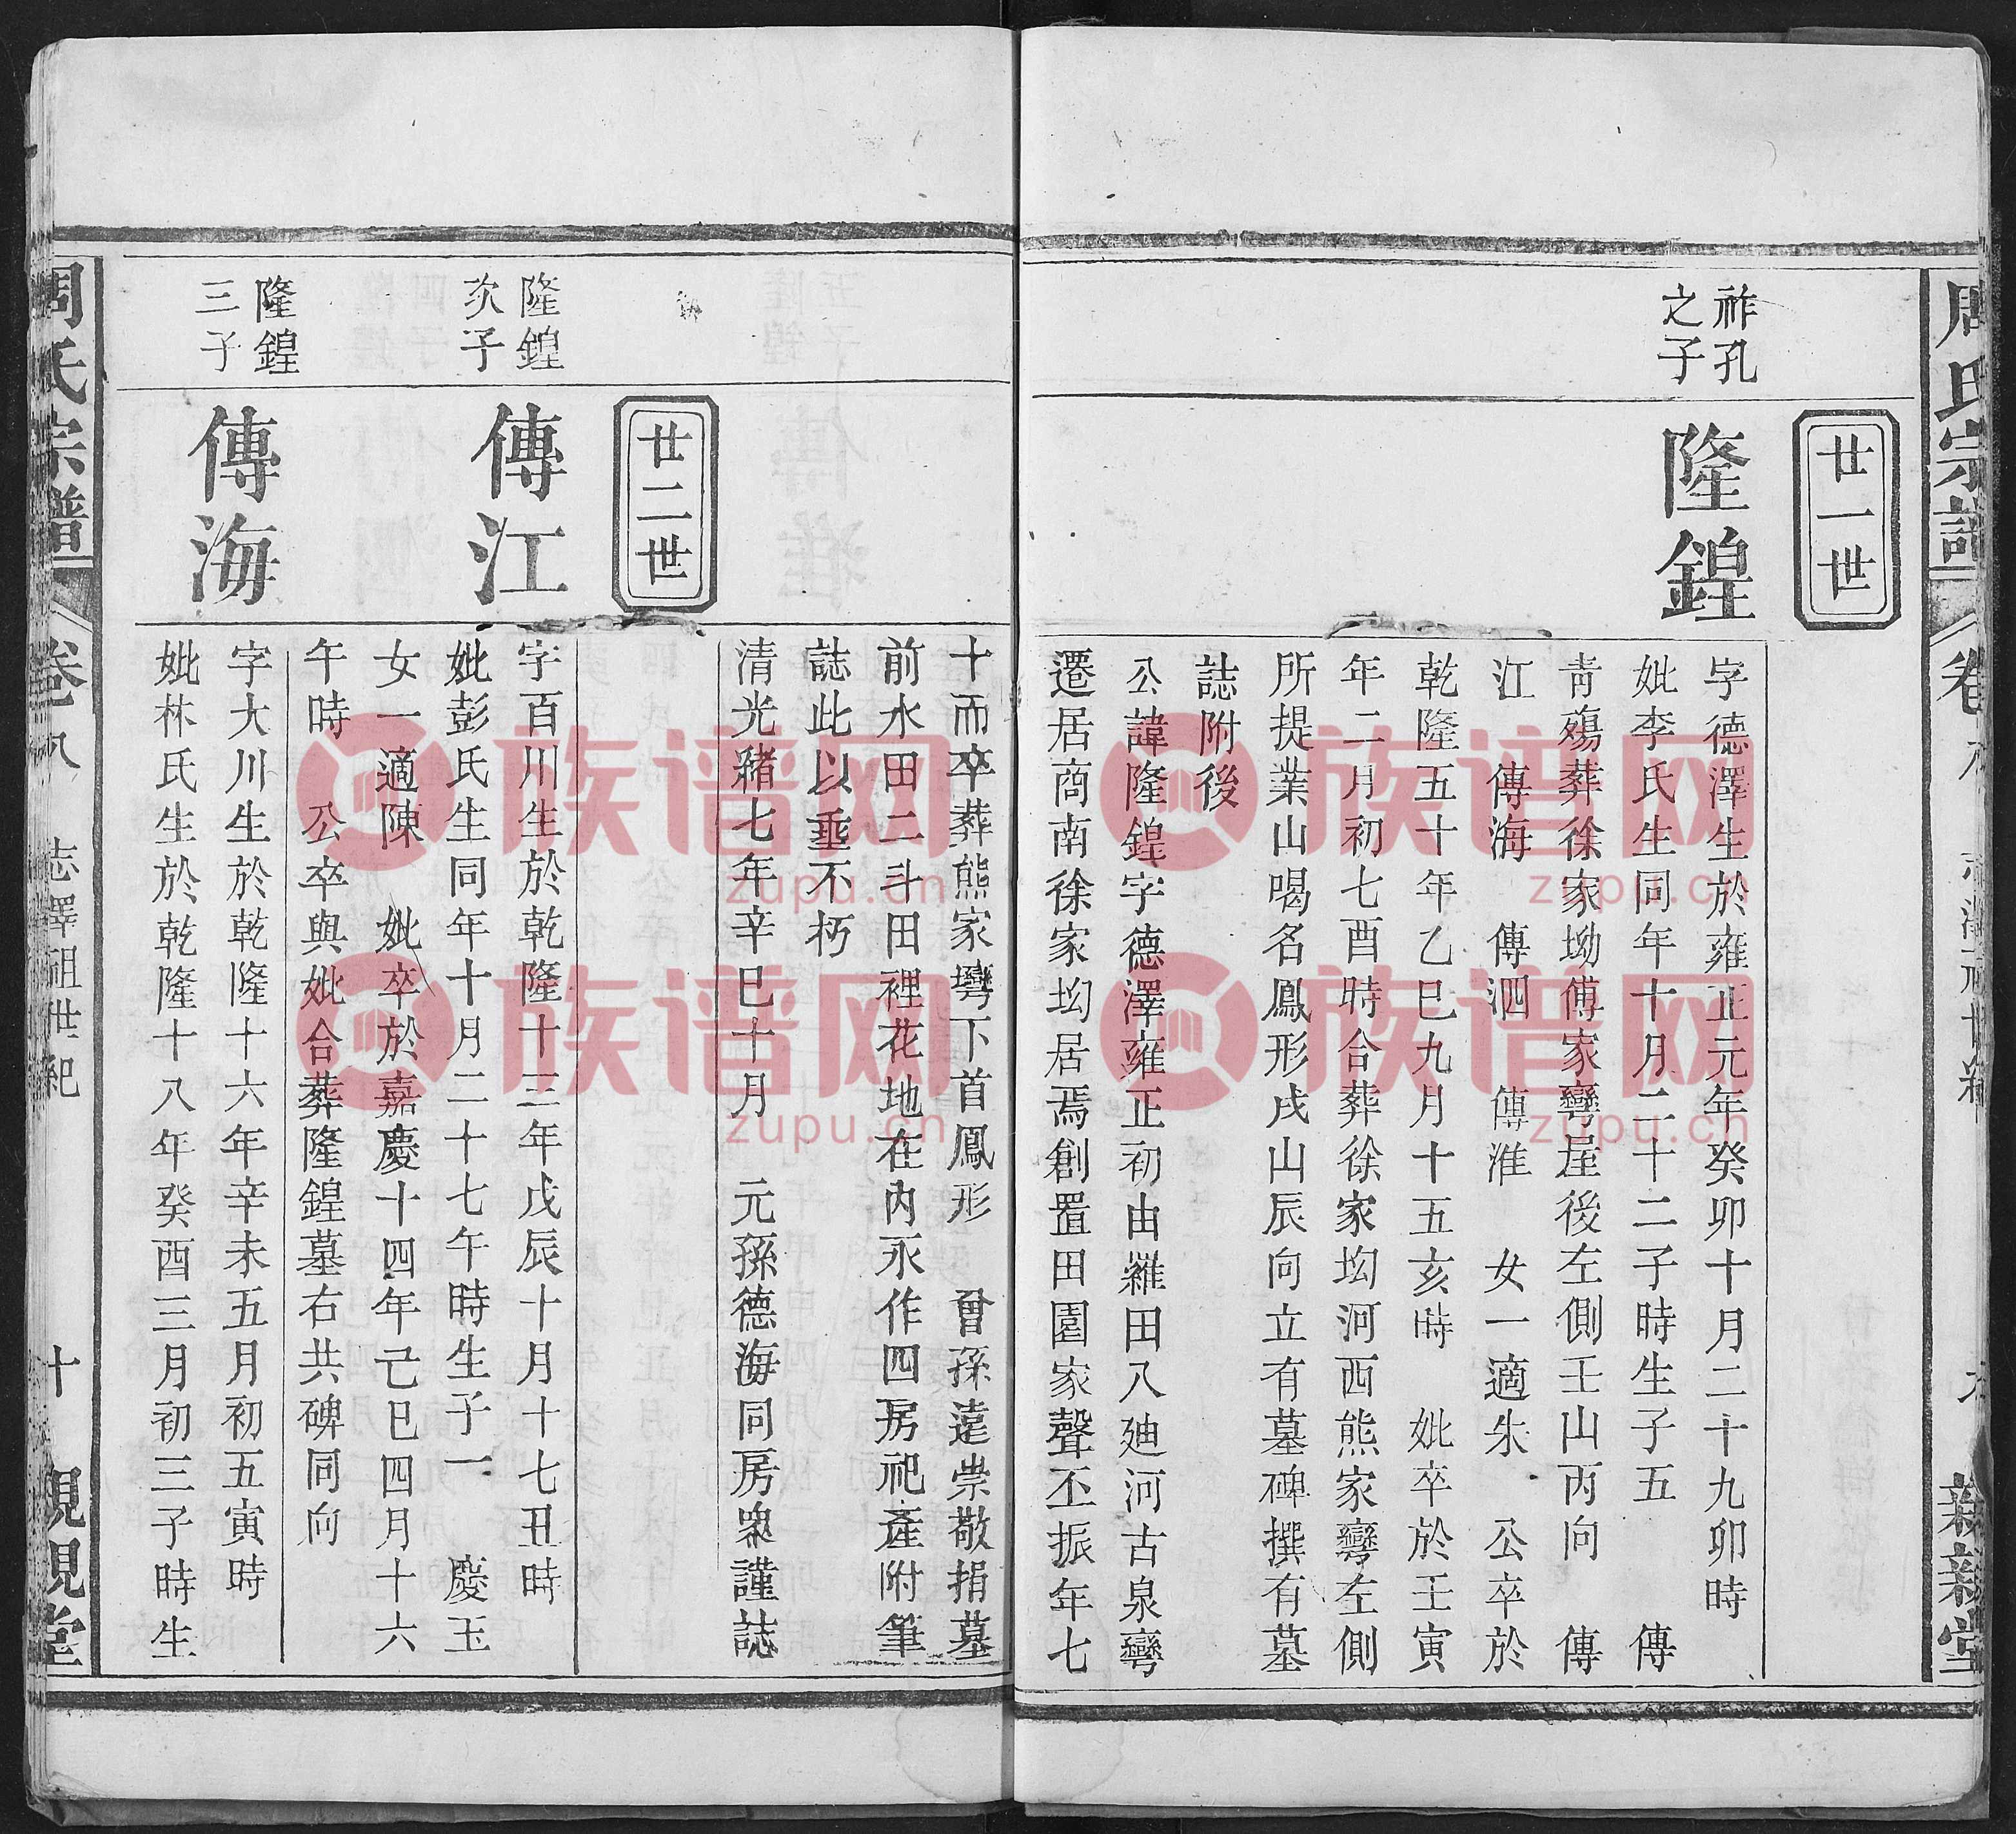 周氏宗譜
卷
親親堂
廿一世
祚孔
之子
隆鍠
字德澤生於雍正元年癸卯十月二十九卯時
妣李氏生同年十月二十二子時生子五 傳
青殤葬徐家坳傅家彎屋後左側壬山丙向 傳
江 傳海 傳泗 傳淮 女一適朱 公卒於
乾隆五十年乙巳九月十五亥時 妣卒於壬寅
年二月初七酉時合葬徐家坳河西熊家彎左側
所提業山喝名鳳形戌山辰向立有墓碑撰有墓
誌附後
公諱隆鍠字德澤雍正初由羅田入廸河古泉彎
遷居商南徐家坳居焉創置田園家聲丕振年七
十而卒葬熊家彎下首鳳形 曾孫遠崇敬捐墓
前水田二斗田裡花地在內永作四房祀產附筆
誌此以垂不朽
清光緒七年辛巳十月 元孫德海同房衆謹誌
廿二世
隆鍠
次子
傳江
字百川生於乾隆十三年戊辰十月十七丑時
妣彭氏生同年十月二十七午時生子一 慶玉
女一適陳 妣卒於嘉慶十四年己巳四月十六
午時 公卒與妣合葬隆鍠墓右共碑同向
隆鍠
三子
傳海
字大川生於乾隆十六年辛未五月初五寅時
妣林氏生於乾隆十八年癸酉三月初三子時生
周氏宗譜
卷八
志澤祖世紀
十
親親堂
族谱网
zupu.cn
族谱网
zupu.cn
族谱网
zupu.cn
族谱网
zupu.cn